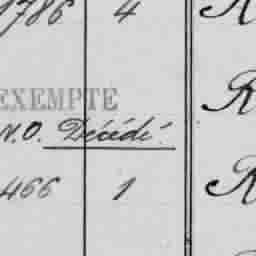 1786 4 R
EXEMPTÉ R
N.O. Décédé.
466 1 R